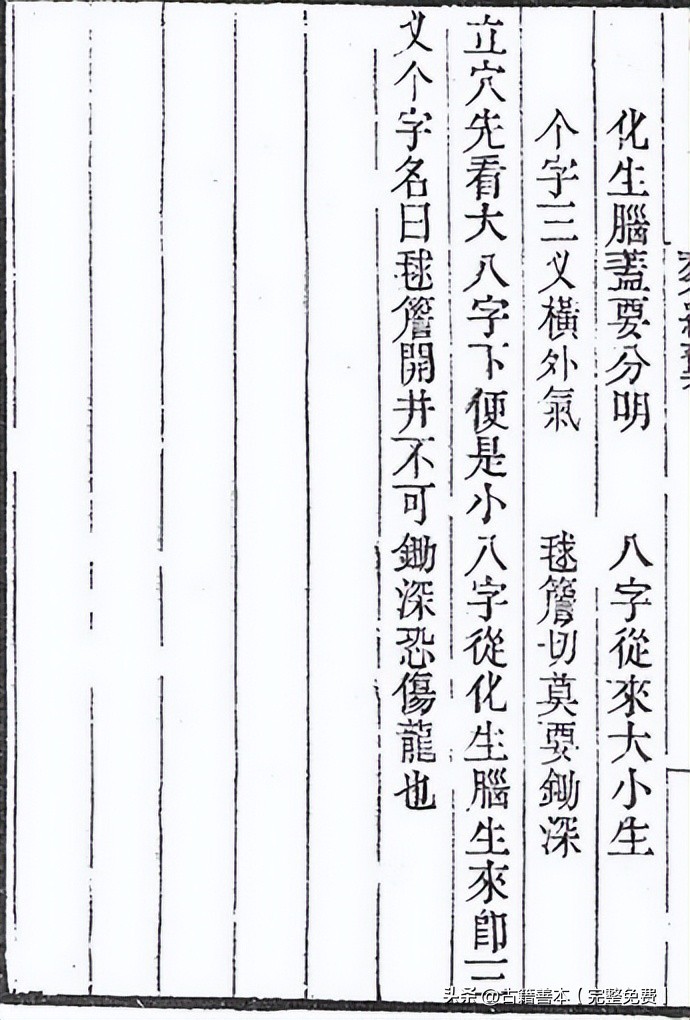 化生腦蓋要分明　八字從來大小生
个字三义橫外氣　毬簷切莫要鋤深
立穴先看大八字下便是小八字從化生腦生來卽三
义个字名曰毬簷開井不可鋤深恐傷龍也
头条 @古籍善本（完整免费）